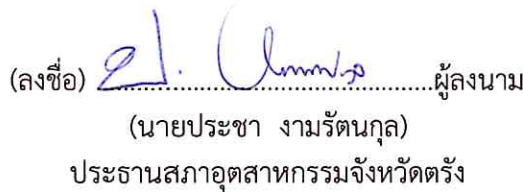 (ลงชื่อ) ........................................ผู้ลงนาม
(นายประชา งามรัตนกุล)
ประธานสภาอุตสาหกรรมจังหวัดตรัง